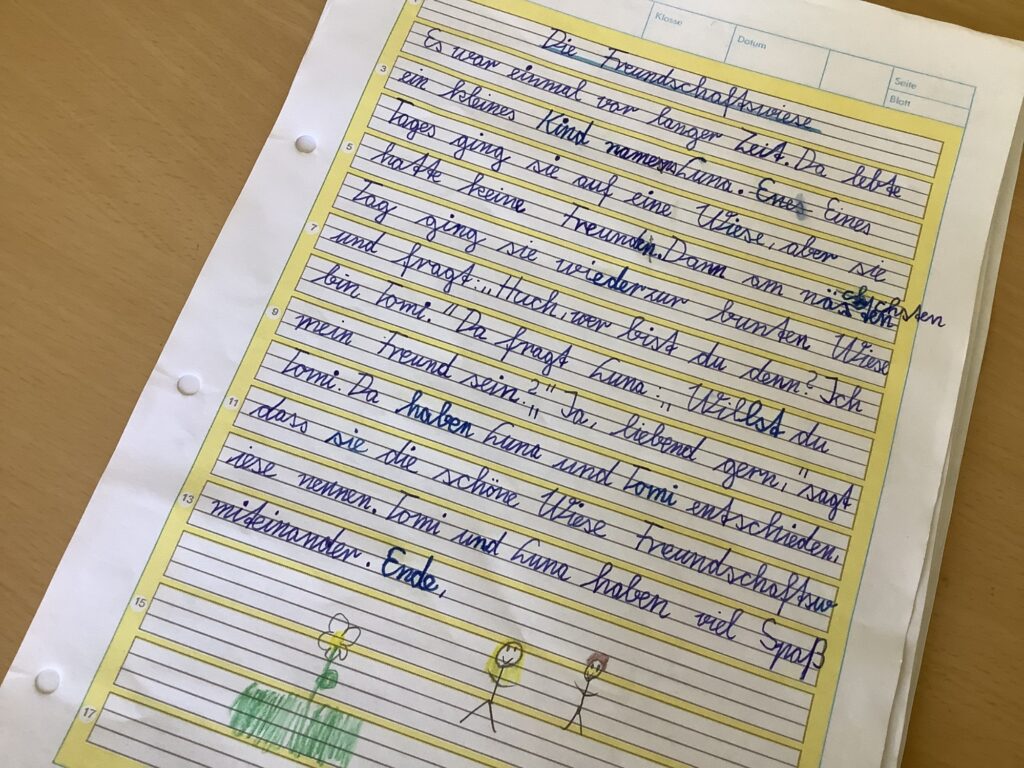 Klasse
Datum
Seite
Blatt
Die Freundschaftswiese
1
Es war einmal vor langer Zeit. Da lebte
3
ein kleines Kind namens Luna. Enes Eines
Tages ging sie auf eine Wiese, aber sie
5
hatte keine Freunden. Dann am nächsten
Tag ging sie wieder zur bunten Wiese
7
und fragt: „Huch, wer bist du denn? Ich
bin Tomi." Da fragt Luna: „Willst du
9
mein Freund sein?" „Ja, liebend gern," sagt
Tomi. Da haben Luna und Tomi entschieden,
11
dass sie die schöne Wiese Freundschaftsw
iese nennen. Tomi und Luna haben viel Spaß
13
miteinander. Ende.
15
17